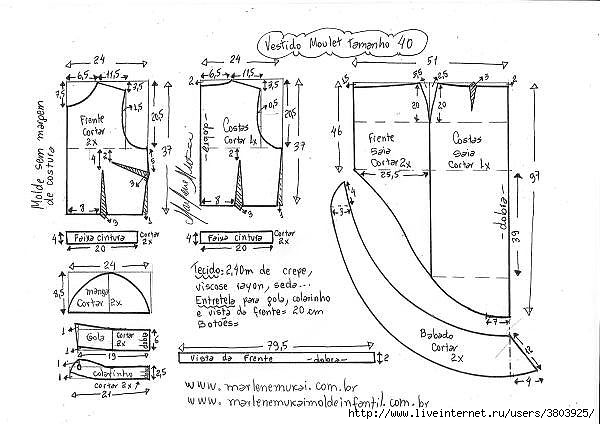 Vestido Moulet Tamanho 40
24
6,5 11,5
7,5
3,5
1,5
20,5
37
Frente
Cortar
2x
4
2
3
8
3
1
Molde sem margem
de costura
Faixa cintura
Cortar
2x
4
20
24
2
6,5 11,5
3,5
0,5
20,5
37
Costas
Cortar 1x
-dobra-
2
8
3
1
Marlene Mukai
Faixa cintura
Cortar
2x
4
20
51
15
5,5 2,5
3
2
20
20
46
Frente
Saia
Cortar 2x
25,5
Costas
Saia
Cortar 1x
-dobra-
97
39
7
4
3
Babado
Cortar
2x
12
4
24
8,5
manga
Cortar 2x
1
1
Gola
Cortar
2x
dobra
6
19
1
1
Colarinho
2,5
Cortar 2x
21
Tecido: 2,40m de crepe,
viscose rayon, seda...
Entretela para gola, colarinho
e vista da frente = 20 cm
Botões=
79,5
Vista da Frente -dobra-
2
www.marlenemukai.com.br
www.marlenemukaimoldeinfantil.com.br
http://www.liveinternet.ru/users/3803925/